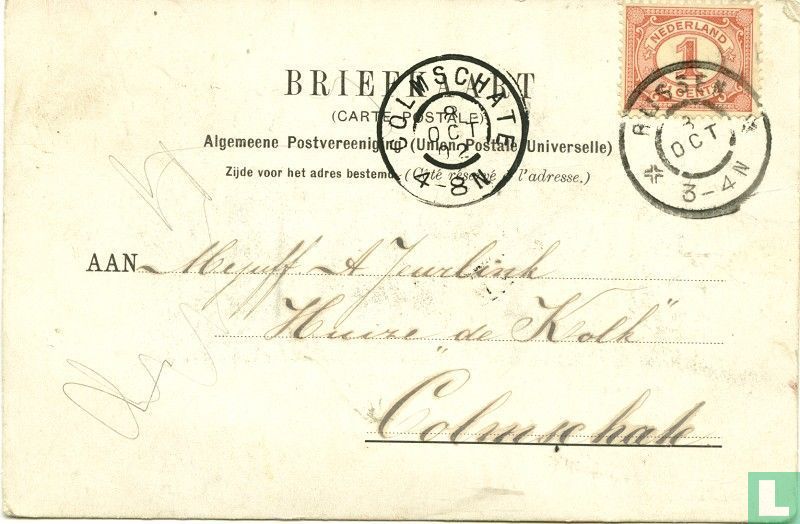 NEDERLAND
1
CENT
BRIEFKAART
(CARTE POSTALE)
Algemeene Postvereeniging (Union Postale Universelle)
Zijde voor het adres bestemd. (Côté réservé à l'adresse.)
COLMSCHATE
8
OCT
02
4-8N
RIJSSEN
8
OCT
3-4N
AAN Mejuff A Jeurlink
Huize "de Kolk"
Colmschate
L